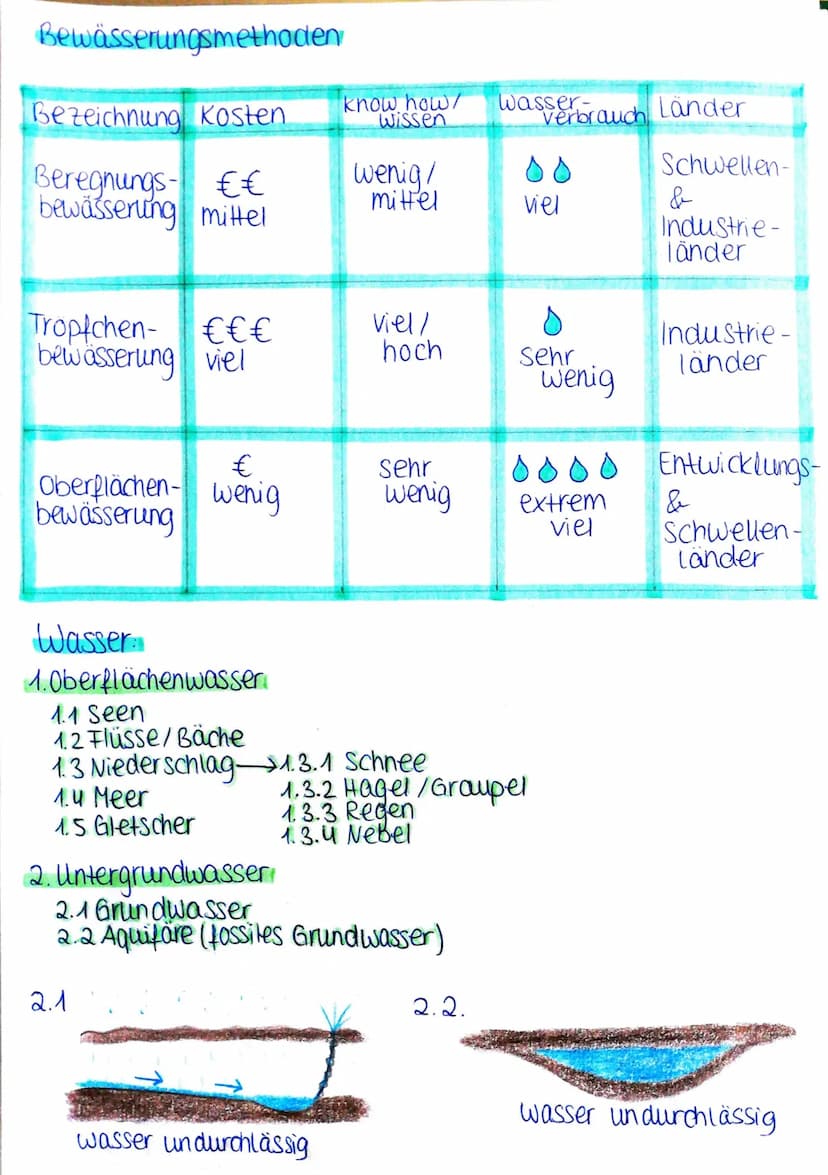 Bewässerungsmethoden
Bezeichnung
Kosten
know how/
wissen
Wasser-
verbrauch
Länder
Beregnungs-
bewässerung
€€
mittel
wenig/
mittel
viel
Schwellen-
&
Industrie-
länder
Tröpfchen-
bewässerung
€€€
viel
viel/
hoch
sehr
wenig
Industrie-
länder
Oberflächen-
bewässerung
€
wenig
sehr
wenig
extrem
viel
Entwicklungs-
&
Schwellen-
länder
Wasser:
1. Oberflächenwasser
1.1 Seen
1.2 Flüsse/Bäche
1.3 Niederschlag → 1.3.1 Schnee
1.3.2 Hagel/Graupel
1.4 Meer
1.3.3 Regen
1.5 Gletscher
1.3.4 Nebel
2. Untergrundwasser
2.1 Grundwasser
2.2 Aquifäre (fossiles Grundwasser)
2.1
2.2.
wasser undurchlässig
wasser undurchlässig